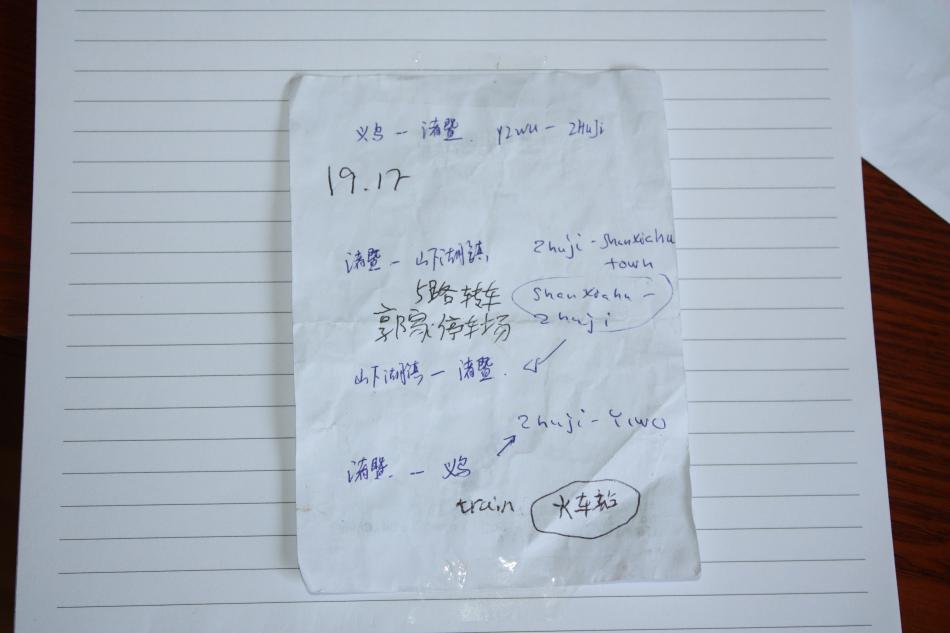 义乌 — 诸暨. YiWU — ZHUJi
19.17
诸暨 — 山下湖镇 Zhuji - Shanxiahu town
5路转车 Shanxiahu - Zhuji
郭家停车场
山下湖镇 — 诸暨.
Zhuji - YiWU
诸暨. — 义乌
train 火车站